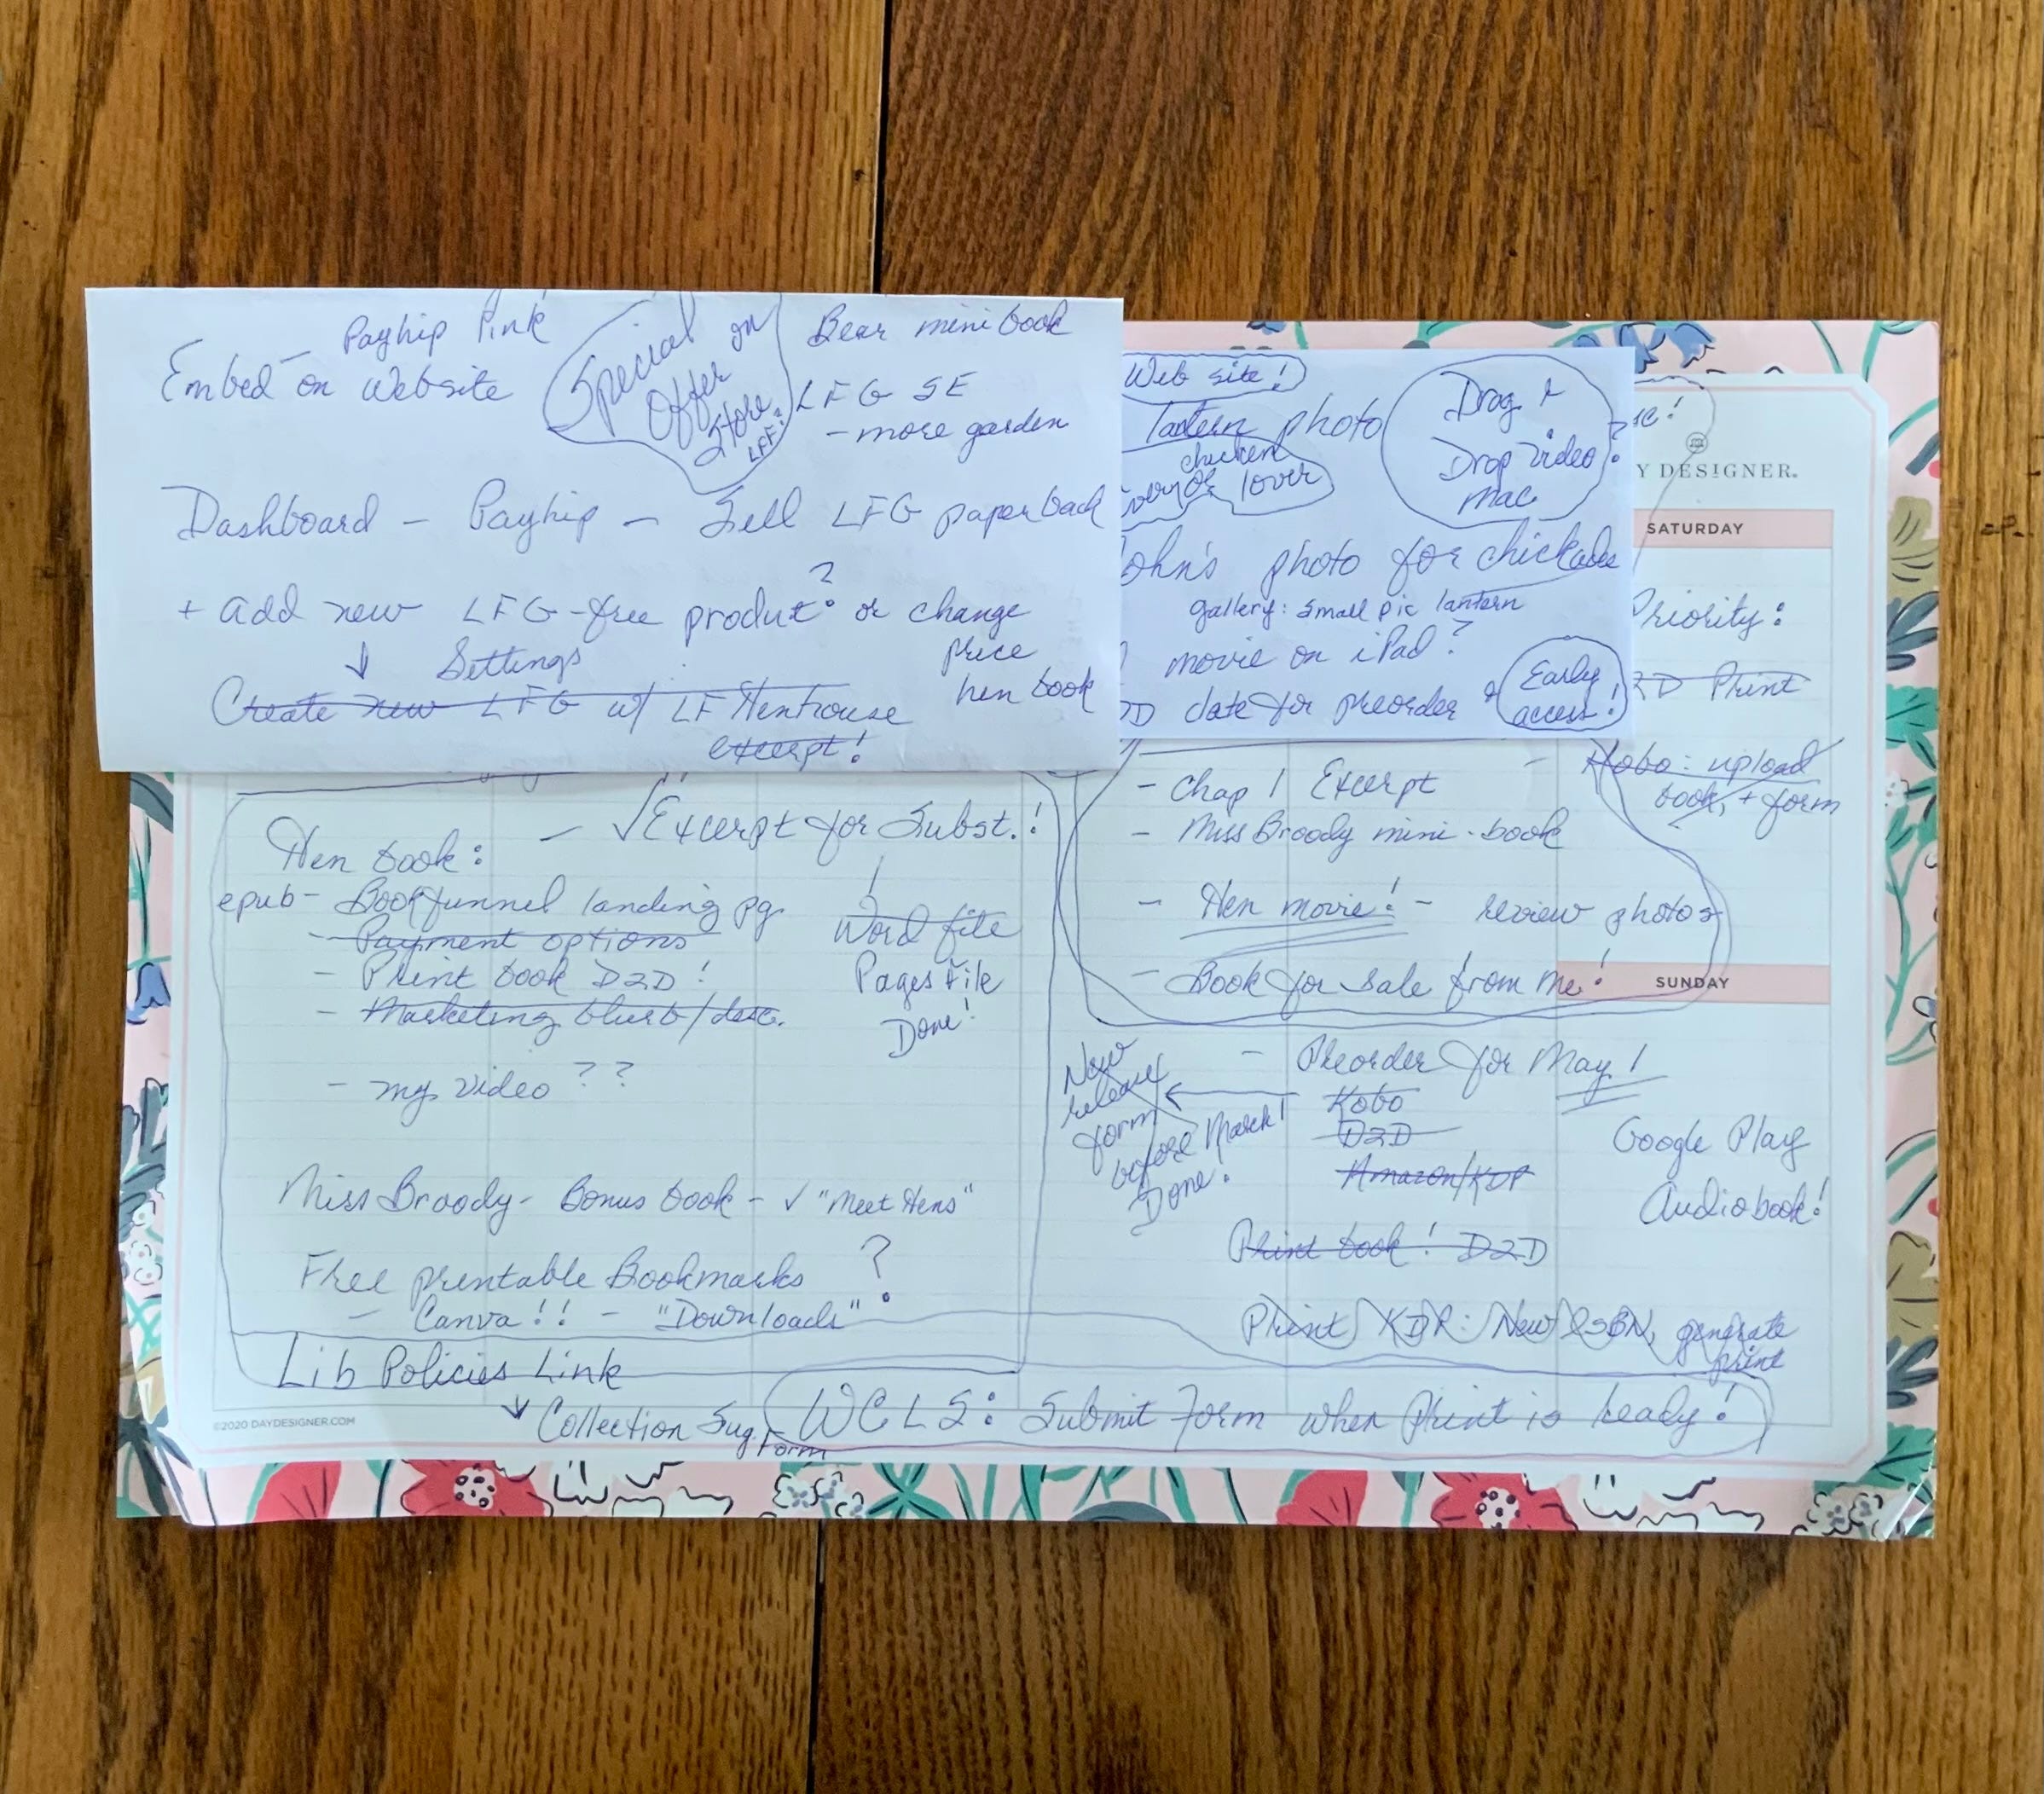 Payhip Pink
Embed on Website
Special on
Offer
Store
LFF?
Bear mini book
LFG SE
- more garden
Dashboard - Payhip - Sell LFG paperback
+ add new LFG-free produt? or change
price
hen book
↓ Settings
Create new LFG w/ LF Henhouse
excerpt!
Web site!
lantern photo
chicken
lover
Drag &
Drop video?
Mac
ohn's photo for chickadee
gallery: small pic lantern
movie on iPad?
date for preorder
Early
access!
Y DESIGNER.
SATURDAY
Priority:
2D Print
Kobo: upload
book, + form
- Chap 1 Excerpt
- Miss Broody mini-book
- Hen movie! - review photos
- Book for sale from me!
SUNDAY
Hen book: - √ Excerpt for Subst.!
epub - Bookfunnel landing pg.
- Payment options
- Print book D2D!
- Marketing blurb/desc.
- my video ??
Word file
Pages file
Done!
Miss Broody - Bonus book - √ "Meet Hens"
Free printable Bookmarks ?
- Canva!! - "Downloads"
Lib Policies Link
↓ Collection Sug. Form
- Preorder for May 1
Kobo
D2D
Amazon/KDP
New
release
form
before March!
Done!
Google Play
Audiobook!
Print book! D2D
Print KDP: New ISBN, generate
print
WCLS: Submit Form when Print is ready!
©2020 DAYDESIGNER.COM